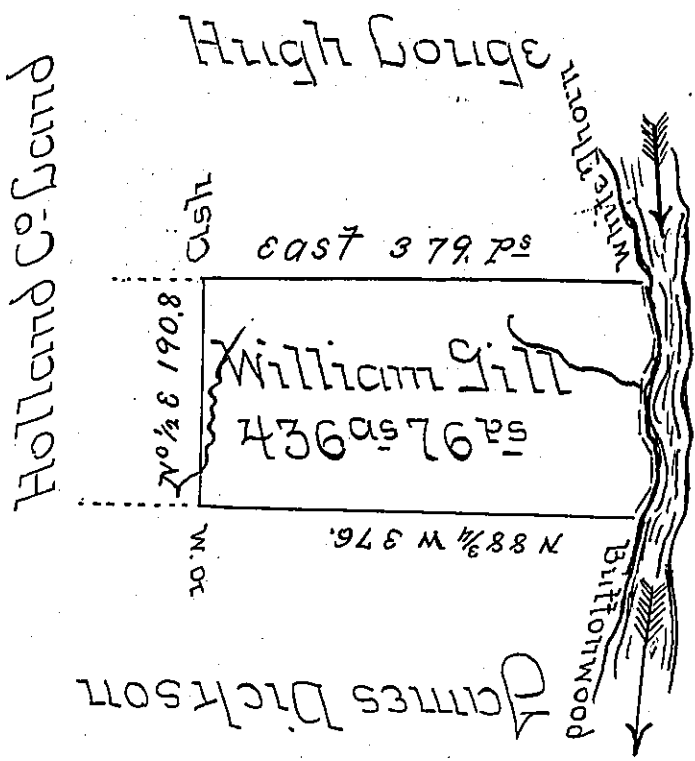 Hugh Gouge
Holland Co. Land
White Thorn
Ash
East 379. Ps
N 0 1/2 E 190.8
William Gill
436 as 76 ps
N 88 3/4 W 376.
W. or
Buttonwood
James Dickson